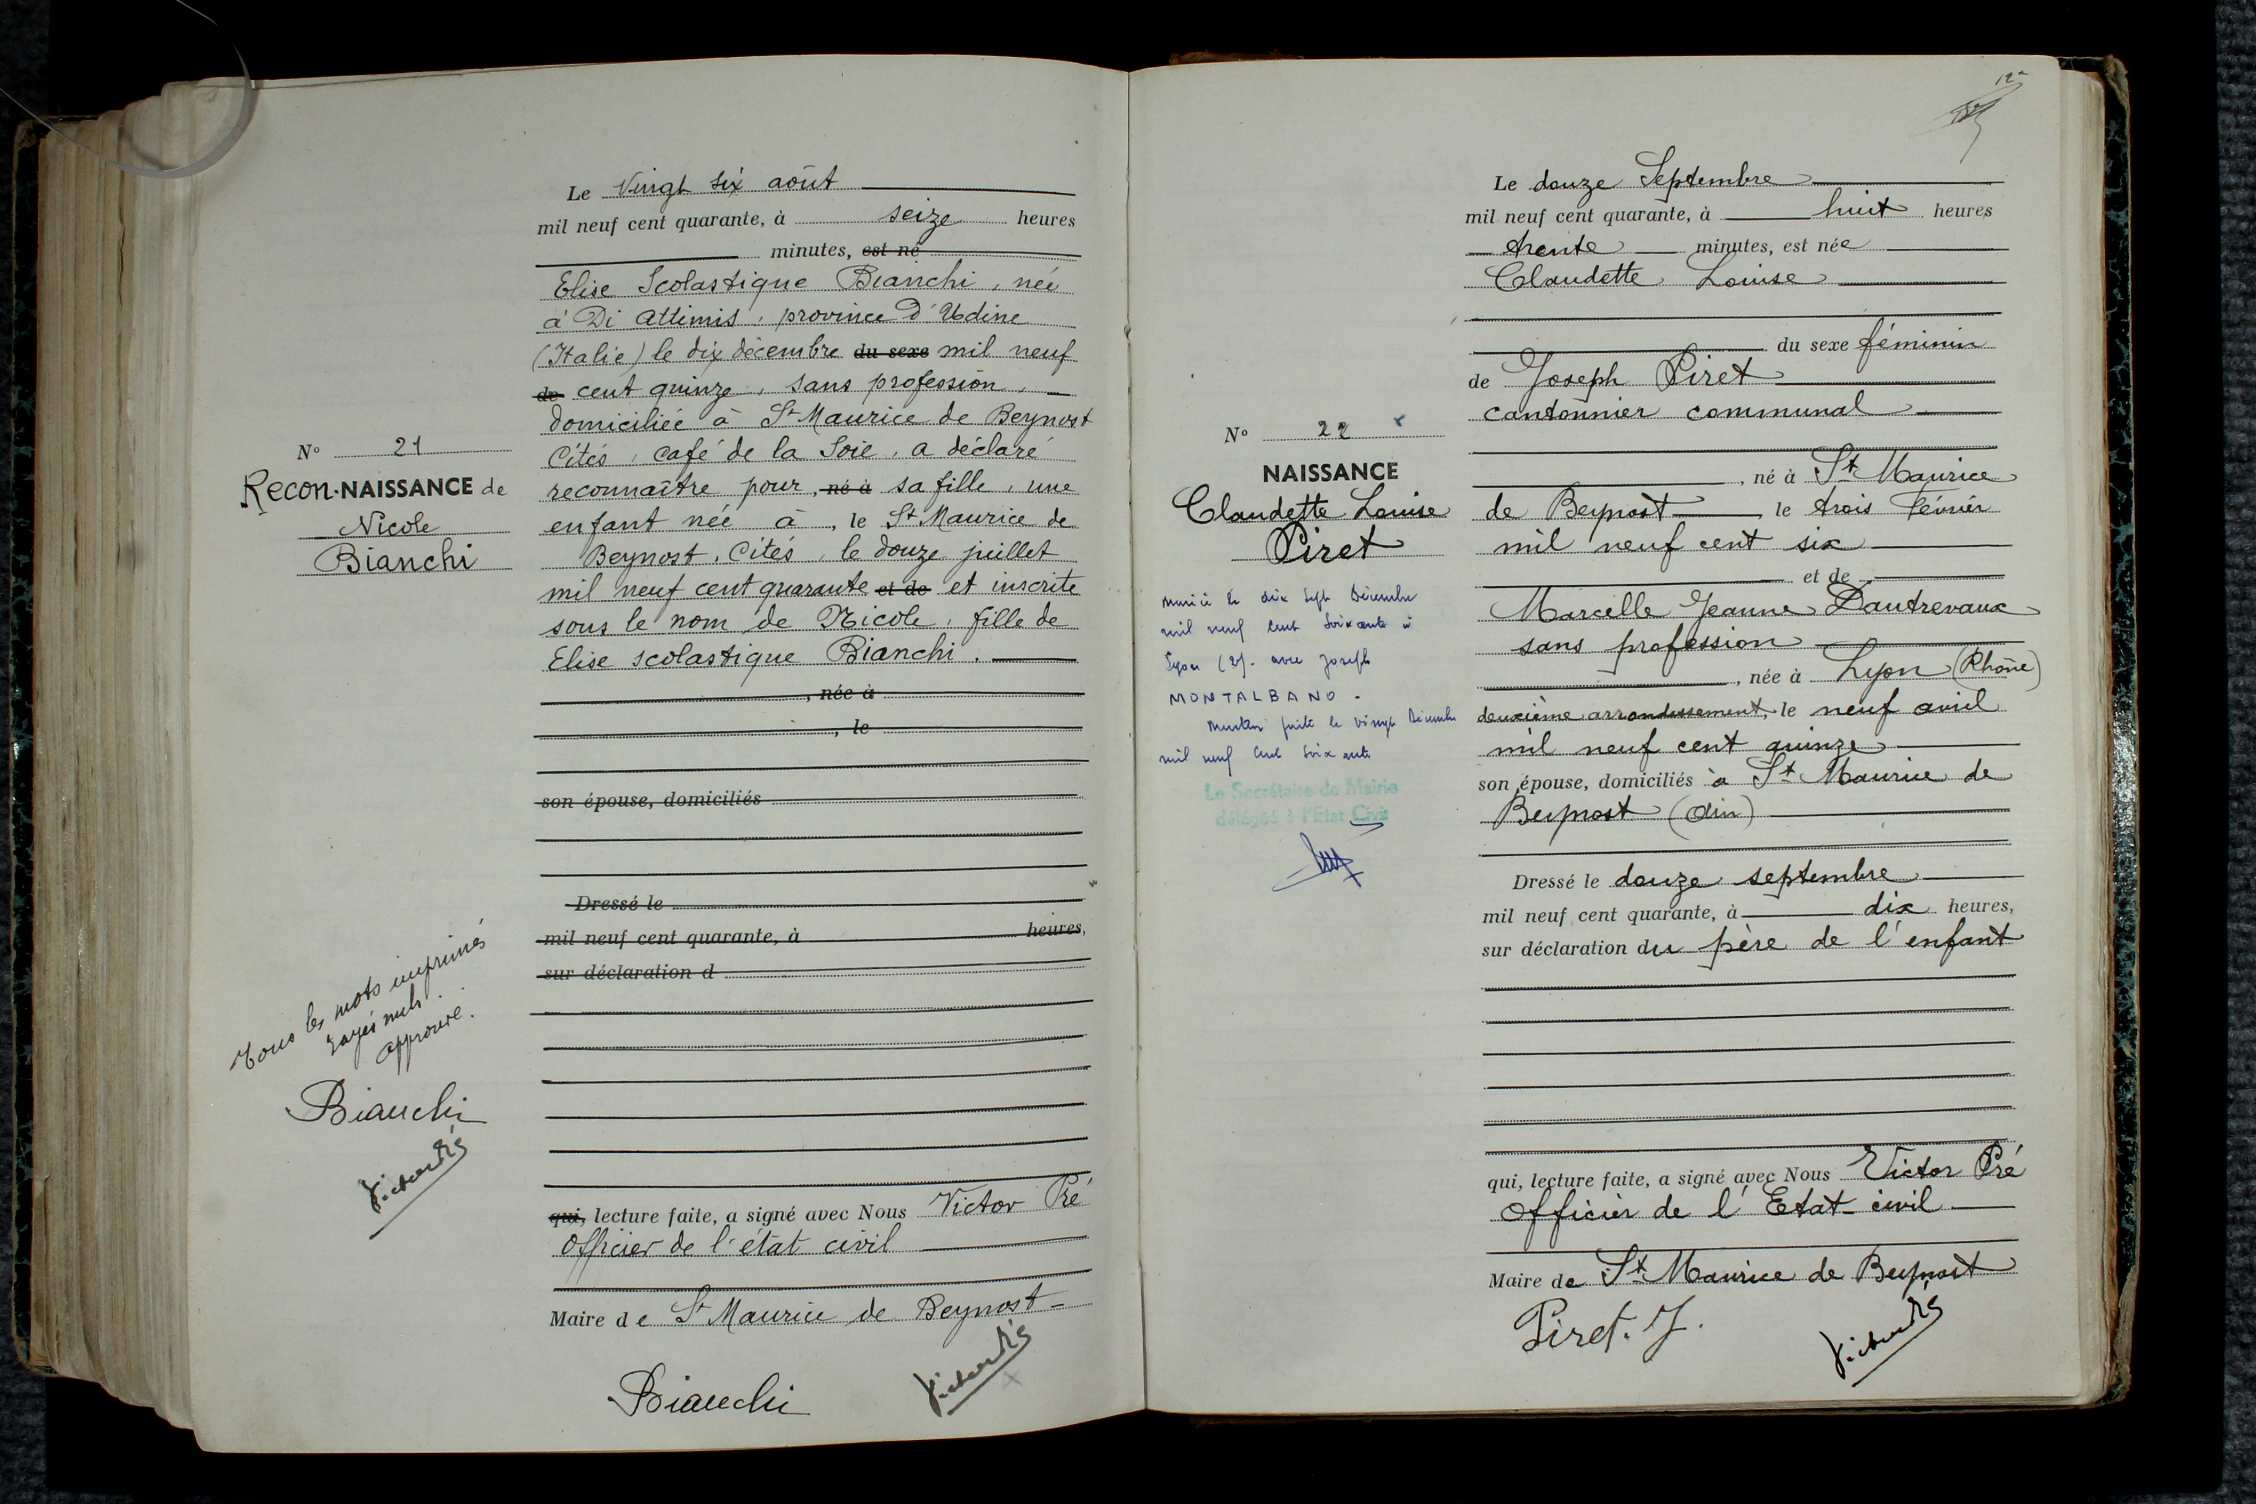 Le Vingt six août
mil neuf cent quarante, à seize heures
minutes, est né
Elise Scolastique Bianchi, née
à Di Attimis, province d'Udine
(Italie) le dix décembre du sexe mil neuf
de cent quinze, sans profession,
domiciliée à St Maurice de Beynost
Cités, café de la Soie, a déclaré
reconnaître pour, né à sa fille, une
enfant née à, le St Maurice de
Beynost, Cités, le douze juillet
mil neuf cent quarante et de et inscrite
sous le nom de Nicole, fille de
Elise scolastique Bianchi.
, née à
, le
son épouse, domiciliés
Dressé le
mil neuf cent quarante, à heures,
sur déclaration d
qui, lecture faite, a signé avec Nous Victor Pré
Officier de l'état civil
Maire de St Maurice de Beynost
Bianchi
Victor Pré
No 21
Recon-NAISSANCE de
Nicole
Bianchi
Tous les mots imprimés
rayés nuls.
approuvé.
Bianchi
Victor Pré
Le douze Septembre
mil neuf cent quarante, à huit heures
trente minutes, est née
Claudette Louise
du sexe féminin
de Joseph Piret
cantonnier communal
, né à St Maurice
de Beynost le trois Février
mil neuf cent six
et de
Marcelle Jeanne Dautrevaux
sans profession
, née à Lyon (Rhône)
deuxième arrondissement, le neuf avril
mil neuf cent quinze
son épouse, domiciliés à St Maurice de
Beynost (Ain)
Dressé le douze septembre
mil neuf cent quarante, à dix heures,
sur déclaration du père de l'enfant
qui, lecture faite, a signé avec Nous Victor Pré
Officier de l'Etat-civil
Maire de St Maurice de Beynost
Piret. J.
Victor Pré
No 22
NAISSANCE
Claudette Louise
Piret
Mariée le dix sept Décembre
mil neuf cent soixante à
Lyon (2). avec Joseph
MONTALBANO.
Mention faite le vingt Décembre
mil neuf cent soixante
Le Secrétaire de Mairie
délégué à l'Etat Civil